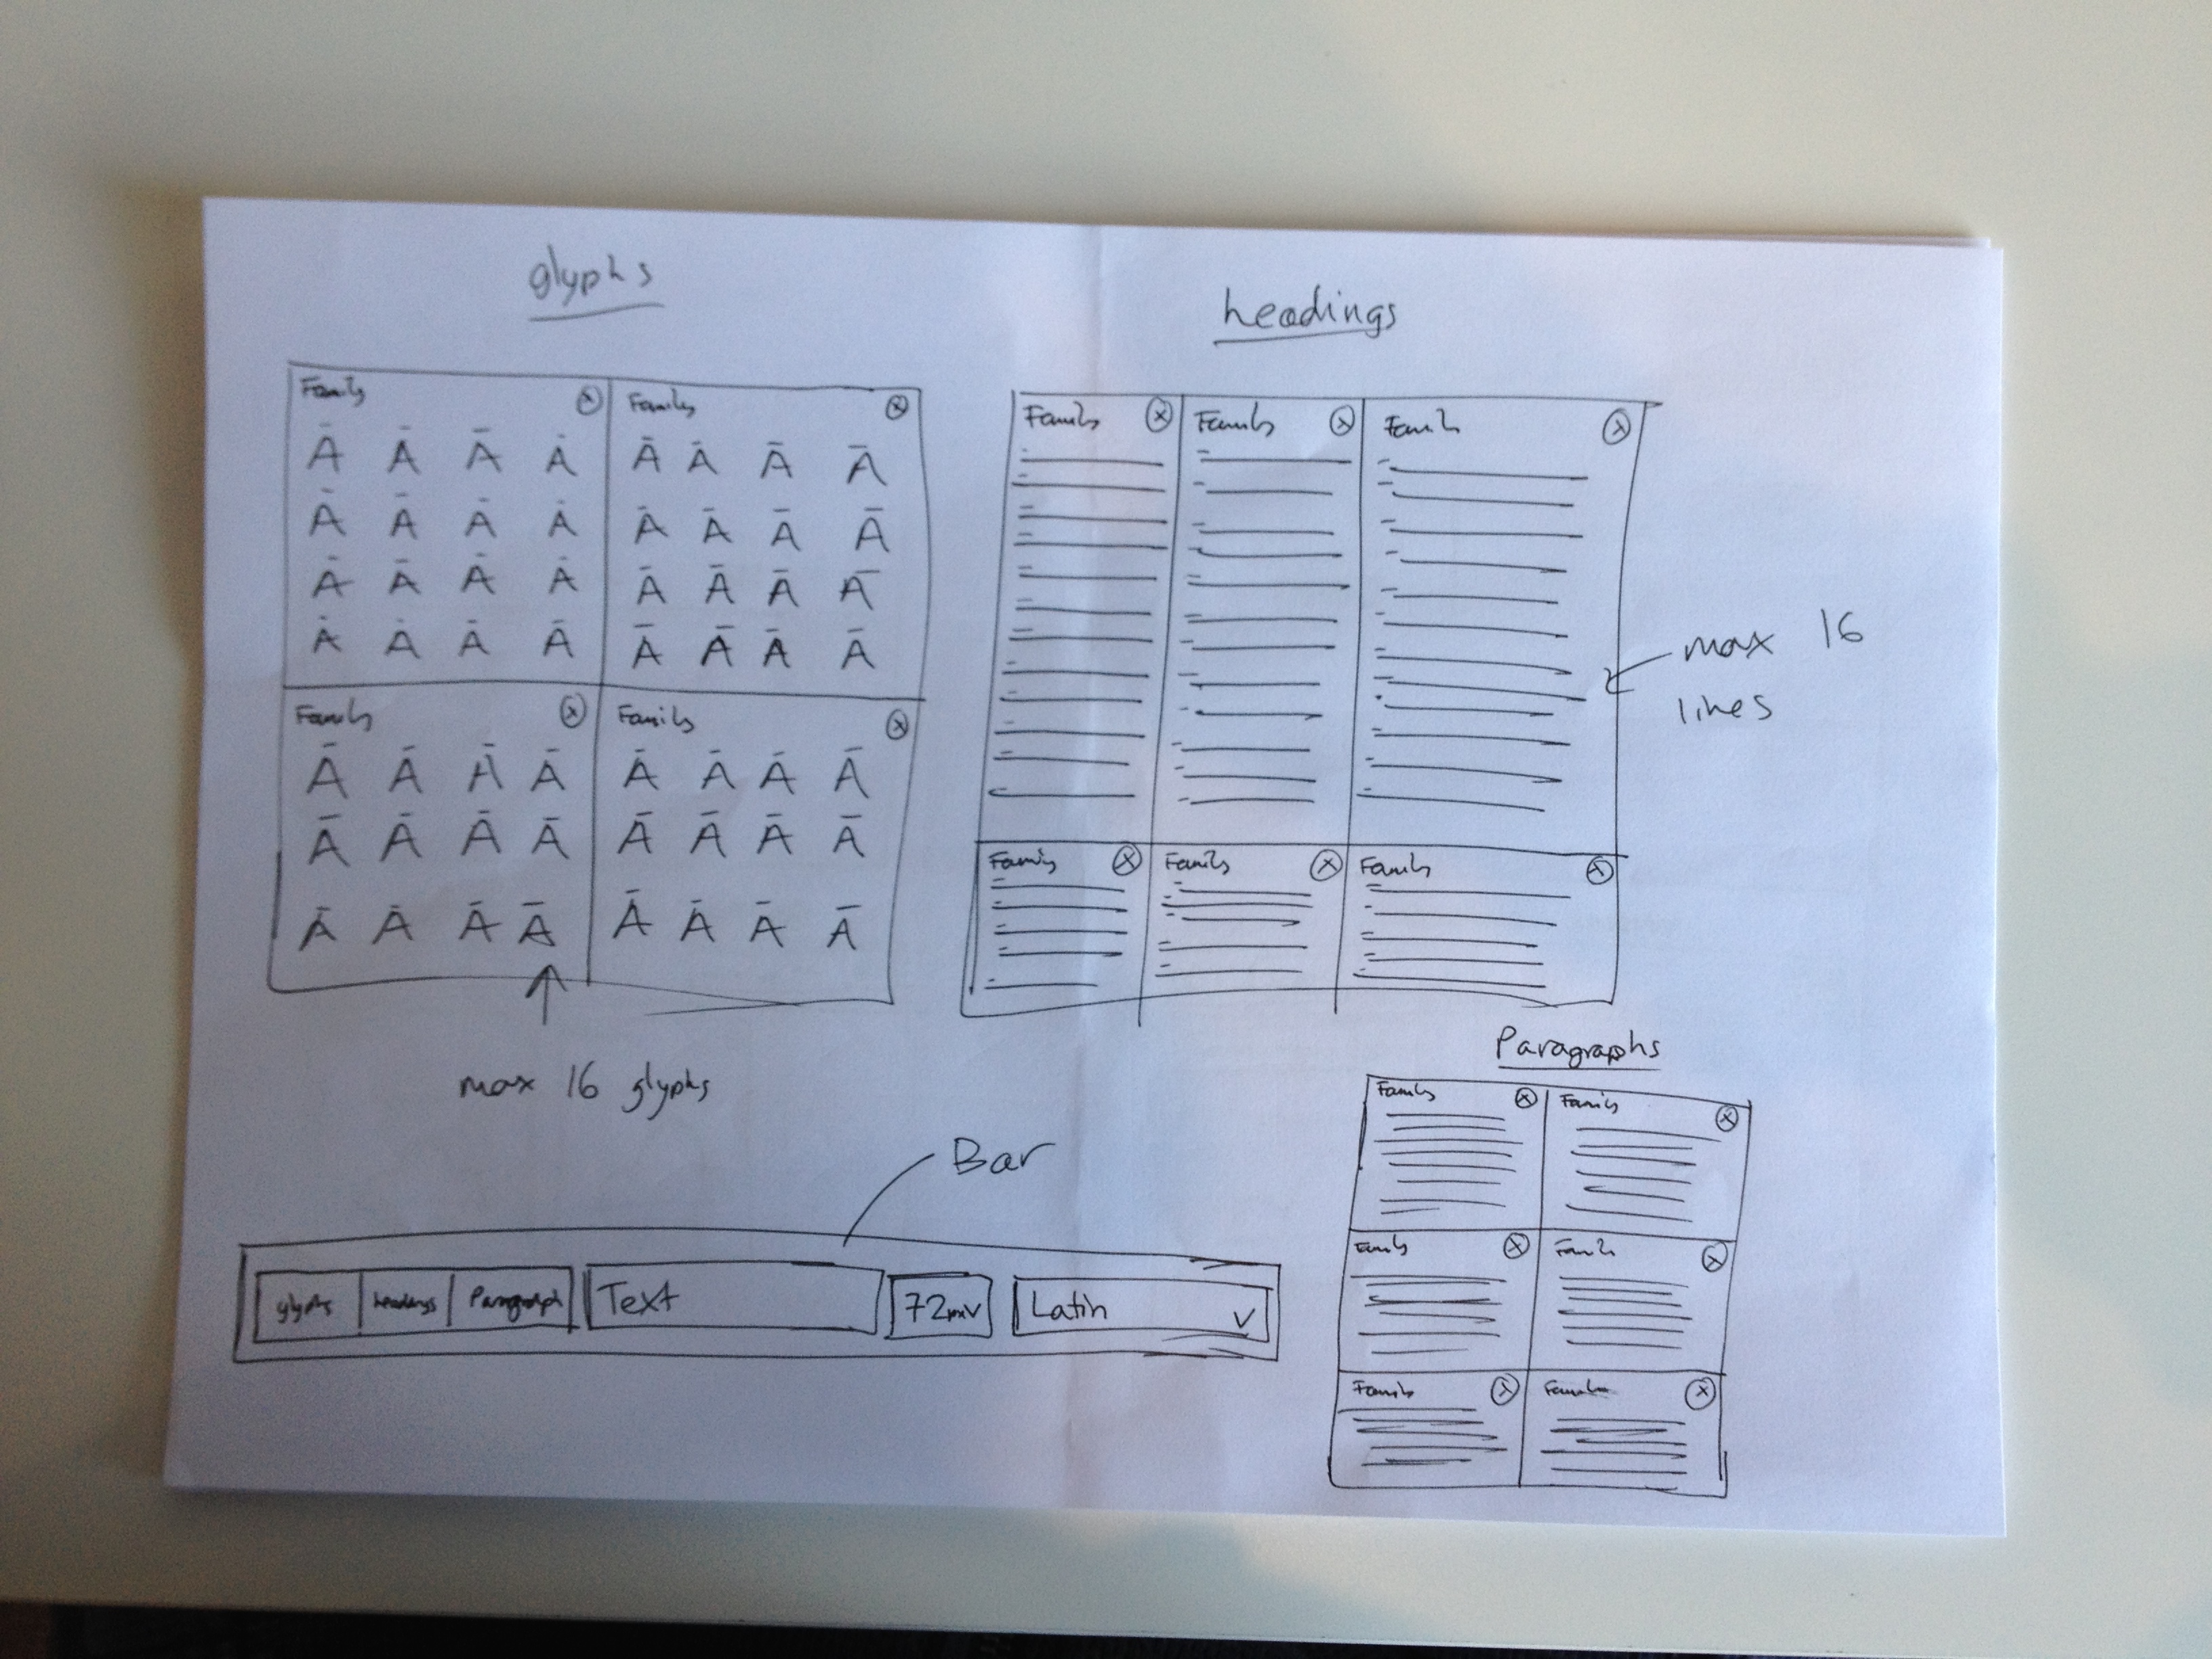 glyphs
Family Family
Ā Ā Ā Ā Ā Ā Ā Ā
Ā Ā Ā Ā Ā Ā Ā Ā
Ā Ā Ā Ā Ā Ā Ā Ā
Ā Ā Ā Ā Ā Ā Ā Ā
Family Family
Ā Ā Ā Ā Ā Ā Ā Ā
Ā Ā Ā Ā Ā Ā Ā Ā
Ā Ā Ā Ā Ā Ā Ā Ā
max 16 glyphs
headings
Family Family Family
max 16
lines
Family Family Family
Paragraphs
Family Family
Family Family
Family Family
Bar
glyphs headings Paragraph Text 72px Latin